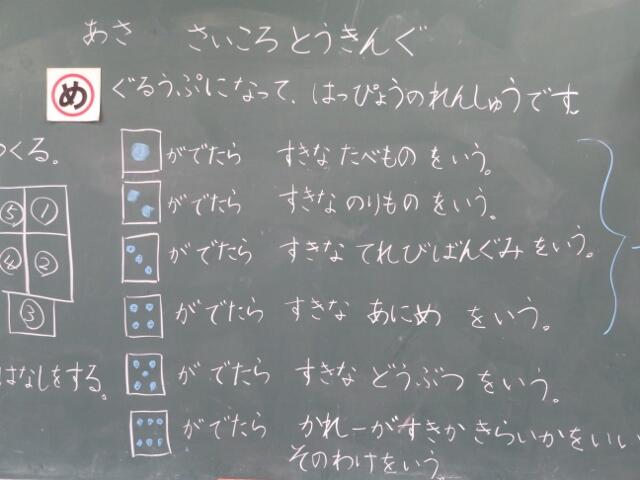 あさ さいころとうきんぐ
め ぐるうぷになって、はっぴょうのれんしゅうです
がでたら すきな たべもの をいう。
がでたら すきな のりもの をいう。
がでたら すきな てれびばんぐみ をいう。
がでたら すきな あにめ をいう。
がでたら すきな どうぶつ をいう。
がでたら かれーがすきか きらいかをいい
そのわけをいう。
くる。
⑤ ①
④ ②
③
はなしをする。